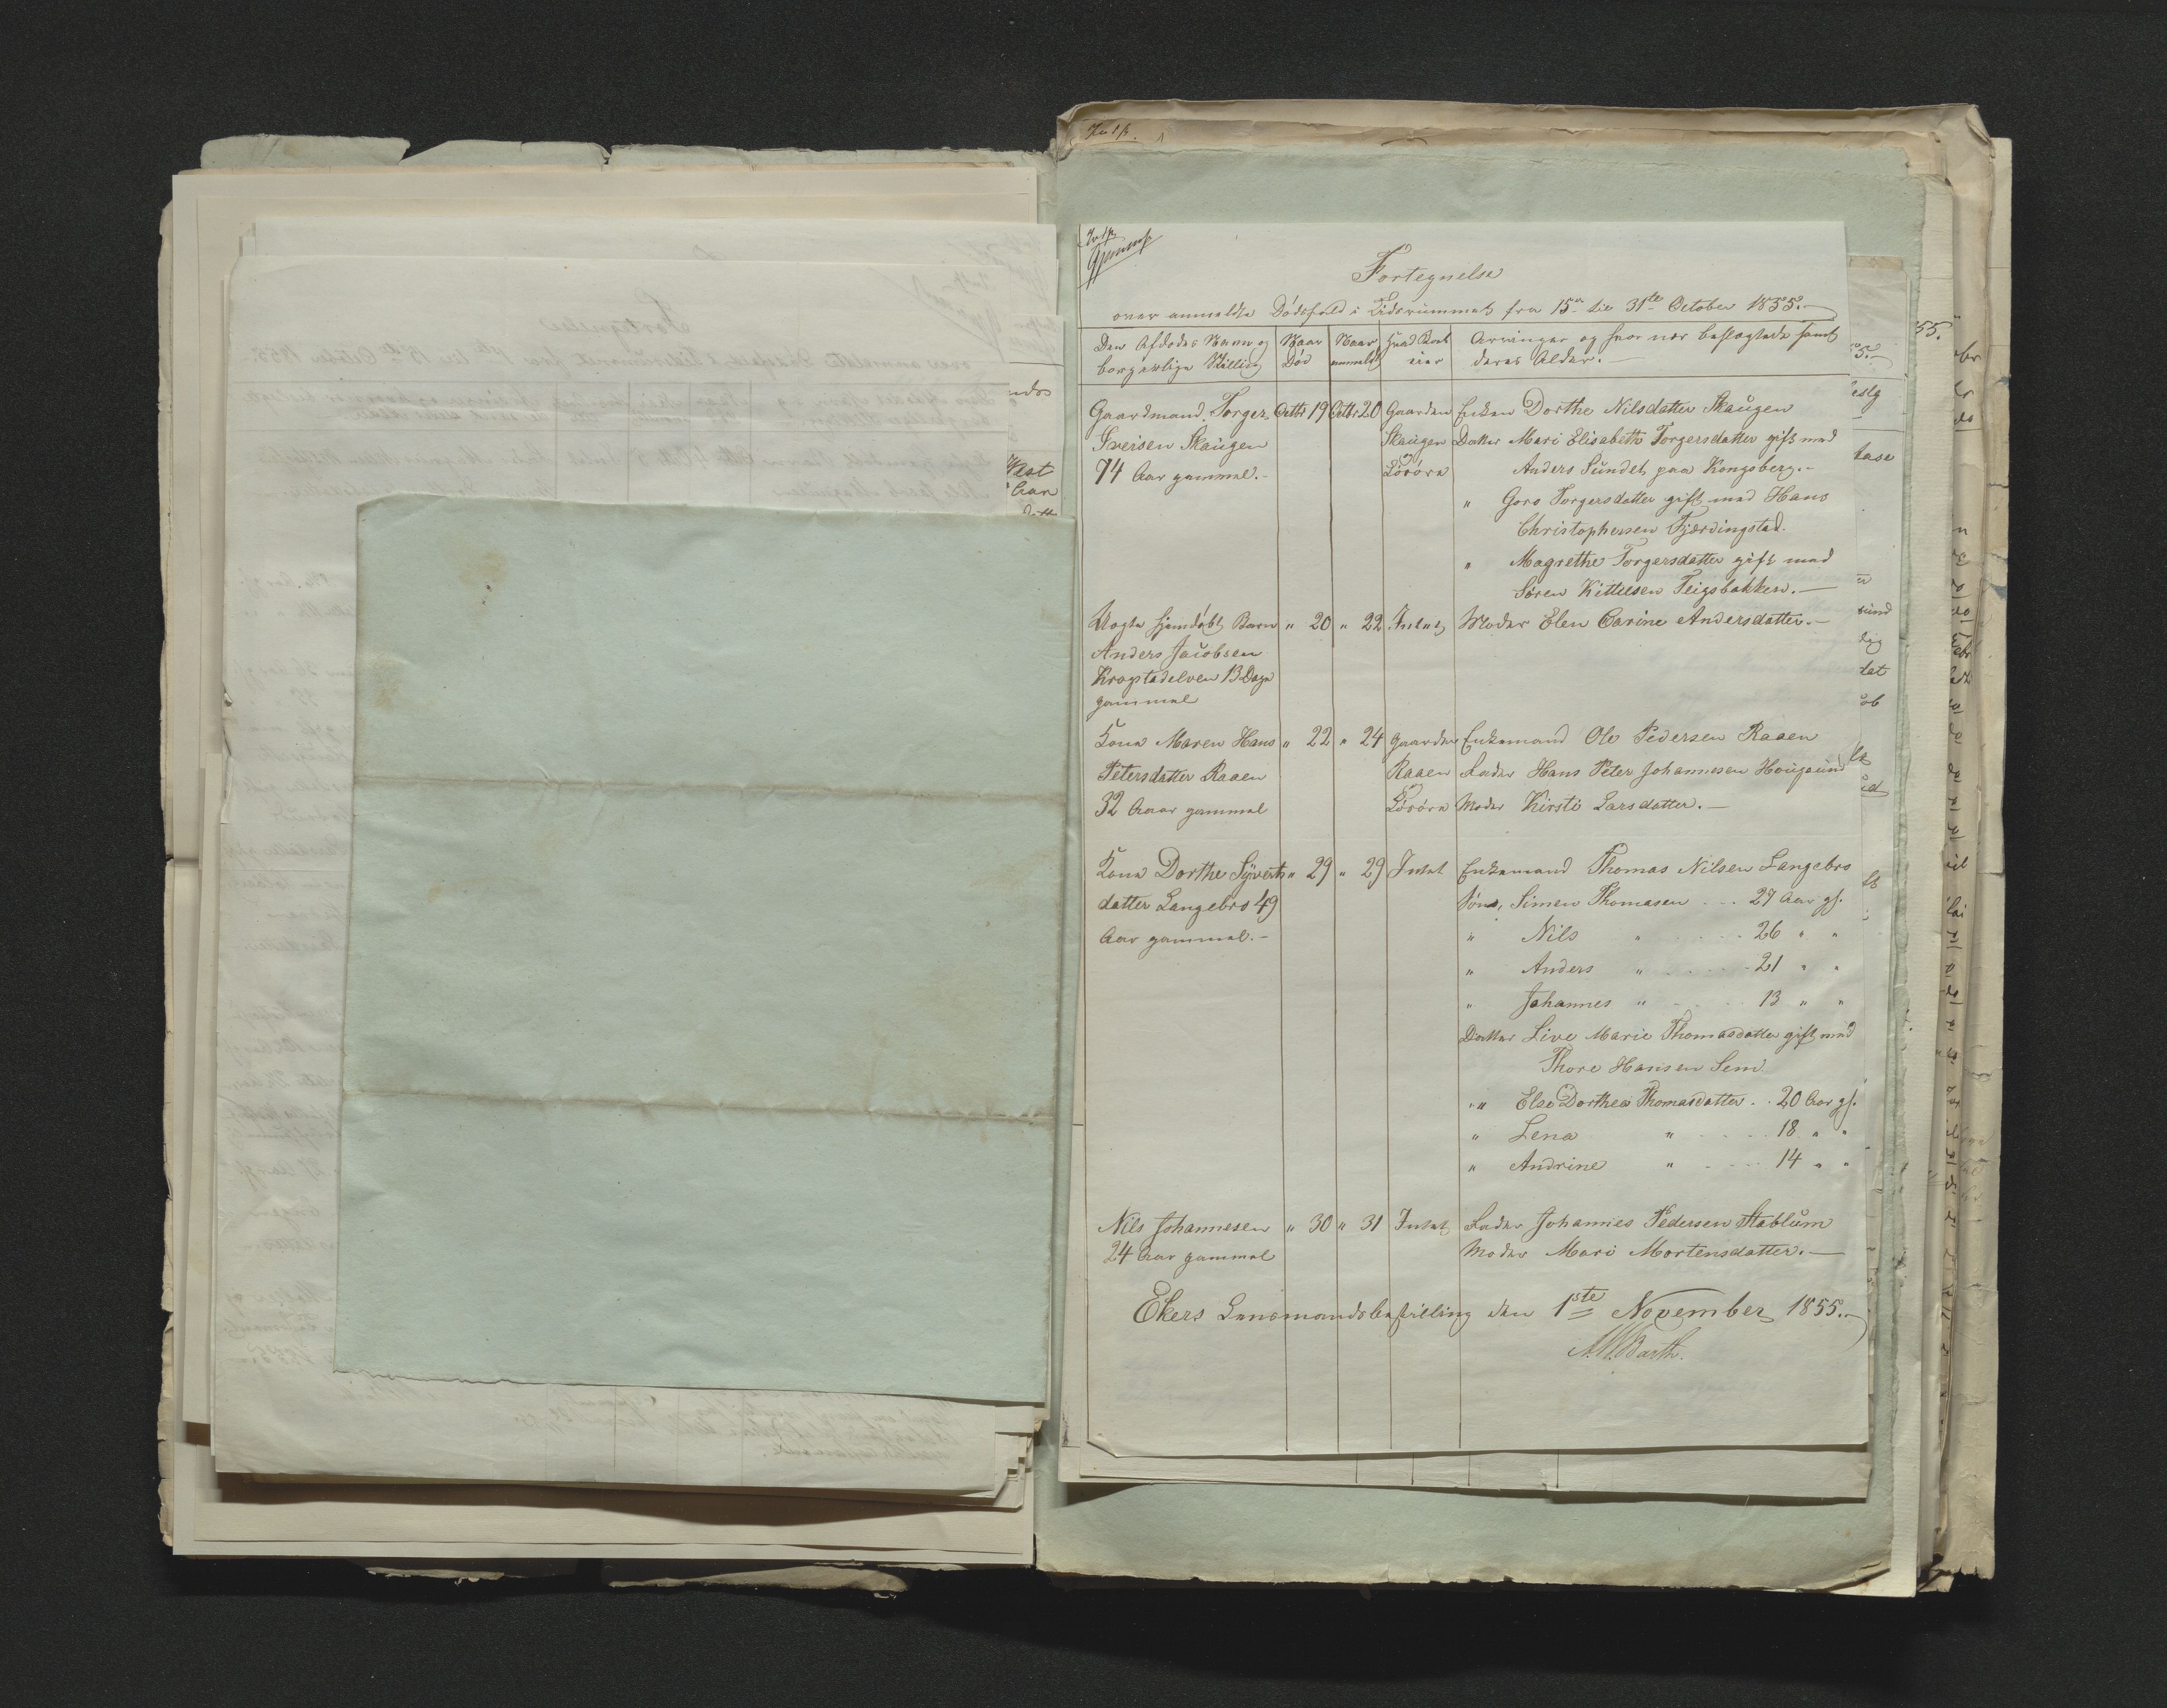 Fortegnelse
over anmeldte Dödsfald i Tidsrummet fra 15de til 31te October 1855.
Den Afdödes Navn og borgerlige Stilling
Naar Död
Naar anmeldt
Hvad Boet eier
Arvinger og hvor nær beslægtede samt deres Alder.
Gaardmand Torger Octbr 19 Octbr 20 Gaarden Enken Dorthe Nilsdatter Skaugen
Sveisen Skaugen Skaugen Datter Mari Elisabeth Torgersdatter gift med
74 Aar gammel. og Lösöre Anders Sundet paa Kongsberg.
" Goro Torgersdatter gift med Hans
Christophersen Fjærdingstad.
" Magrethe Torgersdatter gift med
Sören Kittelsen Teigsbakken.
Uægte hjemdöbt Barn " 20 " 22 Intet Moder Elen Carine Andersdatter.
Anders Jacobsen
Krogstadelven 13 Dage
gammel
Kone Maren Hans " 22 " 24 Gaarden Enkemand Ole Pedersen Raaen
Petersdatter Raaen Raaen Fader Hans Peter Johannesen Hougsund
32 Aar gammel og Lösöre Moder Kirsti Larsdatter.
Kone Dorthe Syverts " 29 " 29 Intet Enkemand Thomas Nilsen Langebro
datter Langebro 49 Sön, Simen Thomasen 27 Aar gl.
Aar gammel. " Nils " 26 " "
" Anders " 21 " "
" Johannes " 13 " "
Datter Live Marie Thomasdatter gift med
Thore Hansen Sem
" Else Dorthea Thomasdatter 20 Aar gl.
" Lena " 18 " "
" Andrine " 14 " "
Nils Johannesen " 30 " 31 Intet Fader Johannes Pedersen Stablum
24 Aar gammel Moder Mari Mortensdatter.
Ekers Lensmandsbestilling den 1ste November 1855.
Barth.